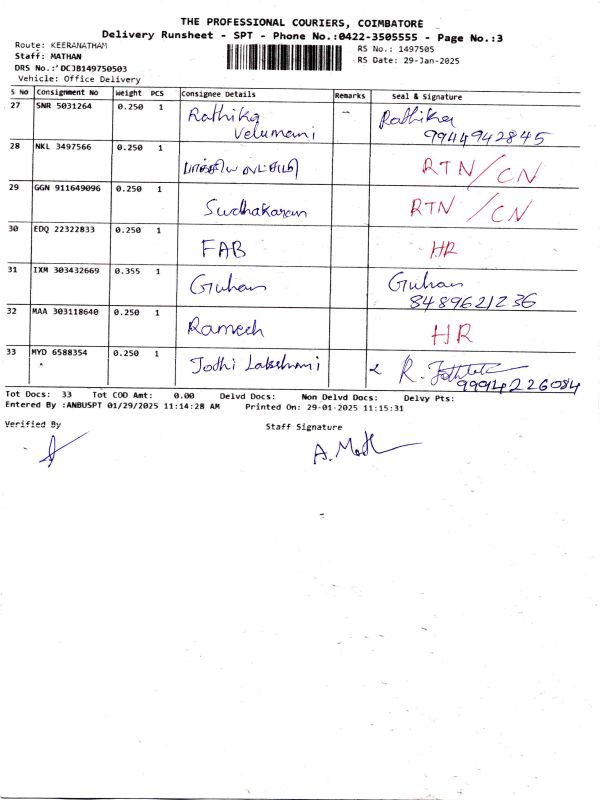 THE PROFESSIONAL COURIERS, COIMBATORE
Delivery Runsheet - SPT - Phone No.:0422-3505555 - Page No.:3
Route: KEERANATHAM
RS No.: 1497505
Staff: MATHAN
RS Date: 29-Jan-2025
DRS No.: DCJB149750503
Vehicle: Office Delivery
S No Consignment No Weight PCS Consignee Details Remarks Seal & Signature
27 SNR 5031264 0.250 1 Rathika Velumani Rathika 9944942845
28 NKL 3497566 0.250 1 RTN/CN
29 GGN 911649096 0.250 1 Sudhakaran RTN/CN
30 EDQ 22322833 0.250 1 FAB HR
31 IXM 303432669 0.355 1 Guhan Guhan 8489621236
32 MAA 303118640 0.250 1 Ramesh HR
33 MYD 6588354 0.250 1 Jothi Lakshmi R. 9994226084
Tot Docs: 33 Tot COD Amt: 0.00 Delvd Docs: Non Delvd Docs: Delvy Pts:
Entered By :ANBUSPT 01/29/2025 11:14:28 AM Printed On: 29-01-2025 11:15:31
Verified By Staff Signature